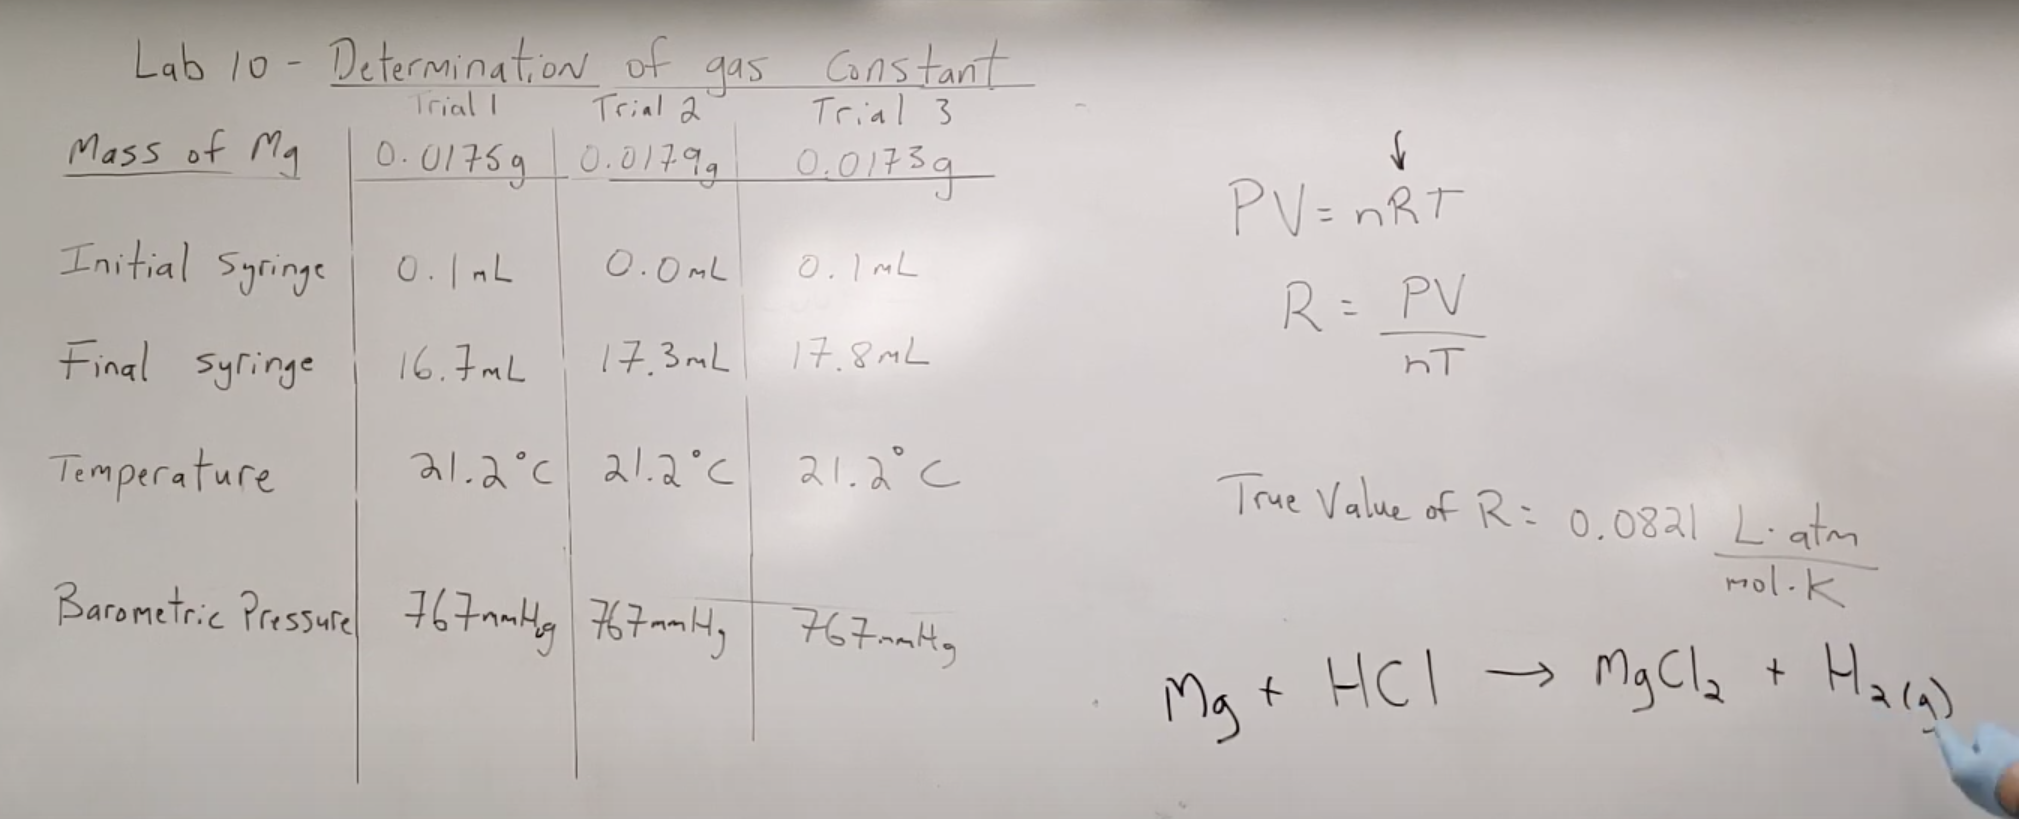 Lab 10 - Determination of gas Constant
Trial 1 Trial 2 Trial 3
Mass of Mg 0.0175g 0.0179g 0.0173g
Initial Syringe 0.1mL 0.0mL 0.1mL
Final syringe 16.7mL 17.3mL 17.8mL
Temperature 21.2°C 21.2°C 21.2°C
Barometric Pressure 767mmHg 767mmHg 767mmHg
↓
PV = nRT
R = PV
nT
True Value of R = 0.0821 L·atm
mol·K
Mg + HCl → MgCl₂ + H₂(g)